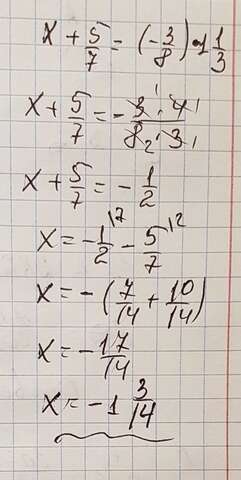 x + 5/7 = (-3/8) · 1 1/3
x + 5/7 = - 3¹ · 4¹ / 8₂ · 3₁
x + 5/7 = - 1/2
x = - 1/2 |⁷ - 5/7 |²
x = - (7/14 + 10/14)
x = - 17/14
x = - 1 3/14